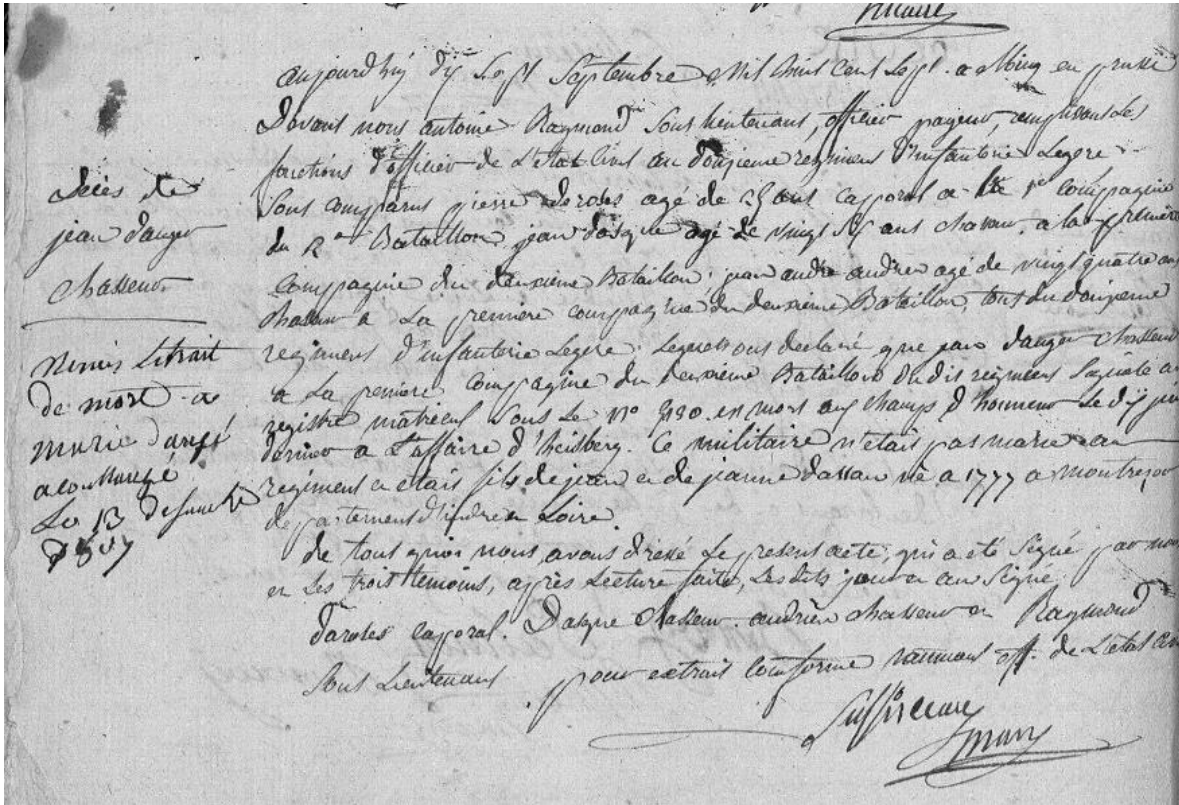 maire
aujourd'huy dix Sept Septembre Mil huit Cent Sept. a Elbing en prusse
Devant nous antoine Raymond Sous lieutenant, officier payeur, remplissant Les
fonctions d'officier de L'état Civil au douzieme regiment d'infanterie Legere
Sont comparus pierre agé de ans Caporal a 1re compagnie
du 2e Bataillon, jean dasque agé de vingt ans chasseur, a la premiere
Compagnie du deuxieme Bataillon; jean andré andrieu agé de vingt quatre ans
chasseur a La premiere compagnie du deuxieme Bataillon, tout du douzieme
regiment d'infanterie Legere. Lequels ont declaré que jean danger chasseur
a La premiere Compagnie du deuxieme Bataillon du dit regiment Signalé au
registre matricul Sous Le No est mort aux champs d'honneur Le dix juin
dernier a L'affaire d'heilsberg. Ce militaire n'etait pas marié au
regiment et etait fils de jean et de jeanne dassau né a 1777 a montresor
departement d'indre et Loire.
de tout quoi nous avons dressé Le present acte, qui a eté Signé par nous
et Les trois temoins, après Lecture faite, Les dits jour et an Signé
caporal. Dasque chasseur. andrieu chasseur et Raymond
Sous Lieutenant. pour extrait Conforme off. de L'etat Civil
maire
décés de
jean danger
chasseur
Remis L'extrait
de mort a
marie
a
Le 13
1807